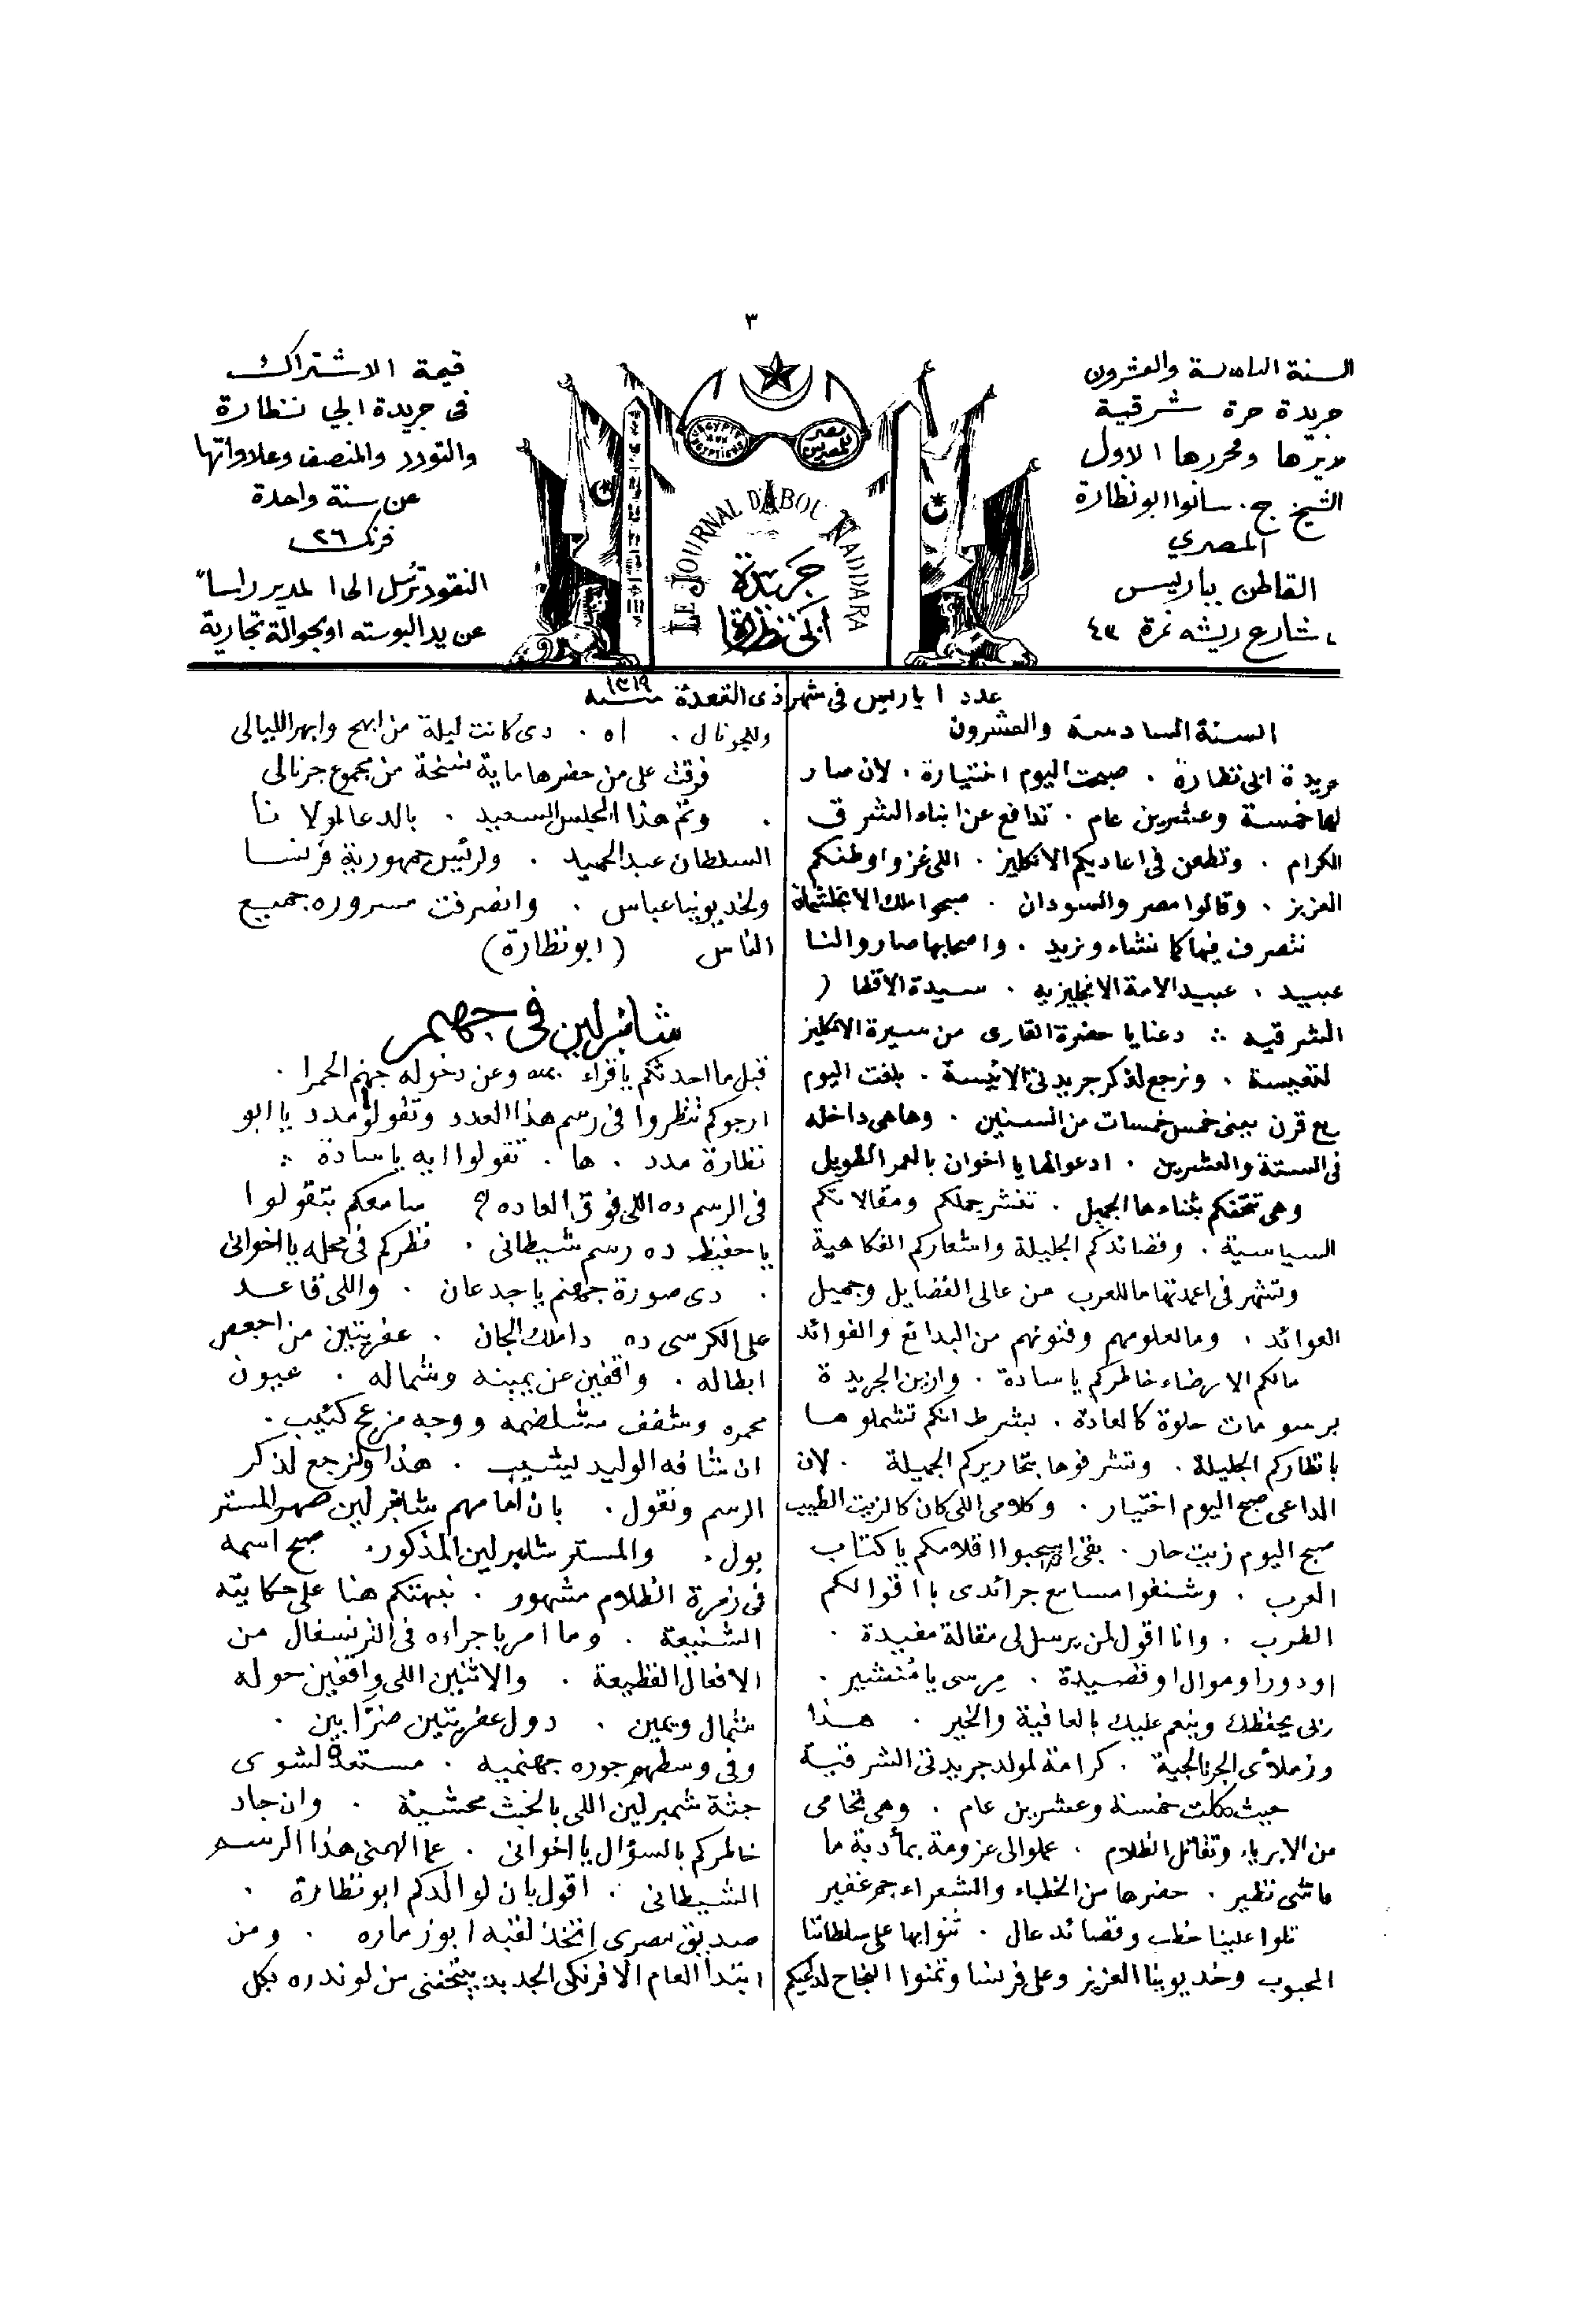 ٣
السنة السادسة والعشرون
جريدة حرة شرقية
مديرها ومحررها الاول
الشيخ ج. سانوا ابو نظارة
المصري
القاطن بباريس
شارع ريشه نمرة ٤٣
EGYPTE AUX EGYPTIENS
مصر للمصريين
LE JOURNAL D'ABOU NADDARA
جريدة
ابى نظارة
قيمة الاشتراك
فى جريدة ابي نظارة
والتودد والمنصف وعلاواتها
عن سنة واحدة
فرنك ٢٦
النقود ترسل الى المدير راساً
عن يد البوسته او بحوالة تجارية
عدد ١ باريس فى شهر ذى القعدة سنة ١٣١٩
السنة السادسة والعشرون
جريدة ابى نظارة . صبحت اليوم اختيارة . لان صار
لها خمسة وعشرين عام . تدافع عن ابناء الشرق
الكرام . وتطعن فى اعاديكم الانكليز . اللى غزوا وطنكم
العزيز . وقالوا مصر والسودان . صبحوا ملك الانجلشمان
نتصرف فيها كما نشاء ونريد . واصحابها صاروا لنا
عبيد . عبيد الامة الانجليزيه . سيدة الاقطار
الشرقيه ∴ دعنا يا حضرة القارى من سيرة الانكليز
التعيسة . ونرجع لذكر جريدتى الانيسة . بلغت اليوم
ربع قرن يعنى خمس خمسات من السنين . وها هى داخله
فى الستة والعشرين . ادعوا لها يا اخوان بالعمر الطويل
وهى تتحفكم بثناءها الجميل . تنشر جملكم ومقالاتكم
السياسية . وقصائدكم الجليلة واشعاركم الفكاهية
وتشهر فى اعمدتها ما للعرب من عالى الفضايل وجميل
العوائد . وما لعلومهم وفنونهم من البدائع والفوائد
مالكم الا رضاء خاطركم يا سادة . وازين الجريدة
برسومات حلوة كالعادة . بشرط انكم تشملوها
بانظاركم الجليلة . وتشرفوها بتحاريركم الجميلة . لان
الداعى صبح اليوم اختيار . وكلامى اللى كان كالزيت الطيب
صبح اليوم زيت حار . بقى اسحبوا اقلامكم يا كتاب
العرب . وشنفوا مسامع جرائدى باقوالكم
الطرب . وانا اقول لمن يرسل لى مقالة مفيدة .
او دور او موال او قصيدة . مرسى يا مُنشير .
ربى يحفظك وينعم عليك بالعافية والخير . هذا
وزملأى الجرنالجية . كرامة لمولد جريدتى الشرقية
حيث كملت خمسة وعشرين عام . وهى تحامى
من الابرياء وتقاتل الظلام . عملوا لى عزومة بمأدبة ما
ماشى نظير . حضرها من الخطباء والشعراء جم غفير
تلوا علينا خطب وقصائد عال . ثنوا بها على سلطاننا
المحبوب وخديوينا العزيز وعلى فرنسا وتمنوا النجاح لداعيكم
وللجرنال . اه . دى كانت ليلة من ابهج وابهر الليالى
فرقت على من حضرها ماية نسخة من مجموع جرنالى
. وتم هذا المجلس السعيد . بالدعا لمولانا
السلطان عبد الحميد . ولرئيس جمهورية فرنسا
ولخديوينا عباس . وانصرفت مسروره جميع
الناس (ابو نظارة)
شامبرلين فى جهنم
قبل ما احدثكم يا قراء عنه وعن دخوله جهنم الحمرا .
ارجوكم تنظروا فى رسم هذا العدد وتقولوا مدد يا ابو
نظارة مدد . ها . تقولوا ايه يا سادة ∴
فى الرسم ده اللى فوق العاده ؟ سامعكم بتقولوا
يا حفيظ ده رسم شيطانى . نظركم فى محله يا اخوانى
. دى صورة جهنم يا جدعان . واللى قاعد
على الكرسى ده دا ملك الجان . عفريتين من اجعص
ابطاله . واقفين عن يمينه وشماله . عيون
محمره وشفف مشلضمه ووجه مزعج كئيب .
ان شافه الوليد ليشيب . هذا ولنرجع لذكر
الرسم ونقول . بان امامهم شامبرلين صهر المستر
بول . والمستر شامبرلين المذكور . صبح اسمه
فى زمرة الظلام مشهور . نبهتكم هنا على حكايته
الشنيعة . وما امر باجراءه فى الترنسفال من
الافعال الفظيعة . والاثنين اللى واقفين حوله
شمال ويمين . دول عفريتين ضرّابين .
وفى وسطهم جوره جهنميه . مستعدة لشوى
جثة شمبرلين اللى بالخبث محشية . وان جاد
خاطركم بالسؤال يا اخوانى . عما الهمنى هذا الرسم
الشيطانى . اقول بان لوالدكم ابو نظارة .
صديق مصرى اتخذ لقبه ابو زماره . ومن
ابتدأ العام الافرنكى الجديد بيتحفنى من لوندره بكل